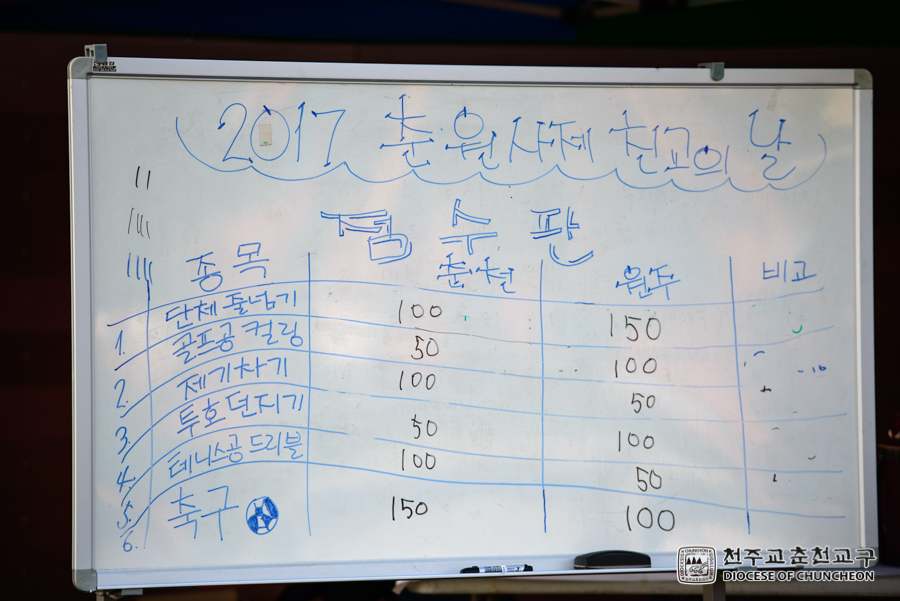 2017 춘·원 사제 친교의 날
점수판
종목 춘천 원주 비고
1. 단체 줄넘기 100 150
2. 골프공 컬링 50 100
3. 제기차기 100 50
4. 투호던지기 50 100
5. 테니스공 드리블 100 50
6. 축구 150 100
천주교춘천교구
DIOCESE OF CHUNCHEON